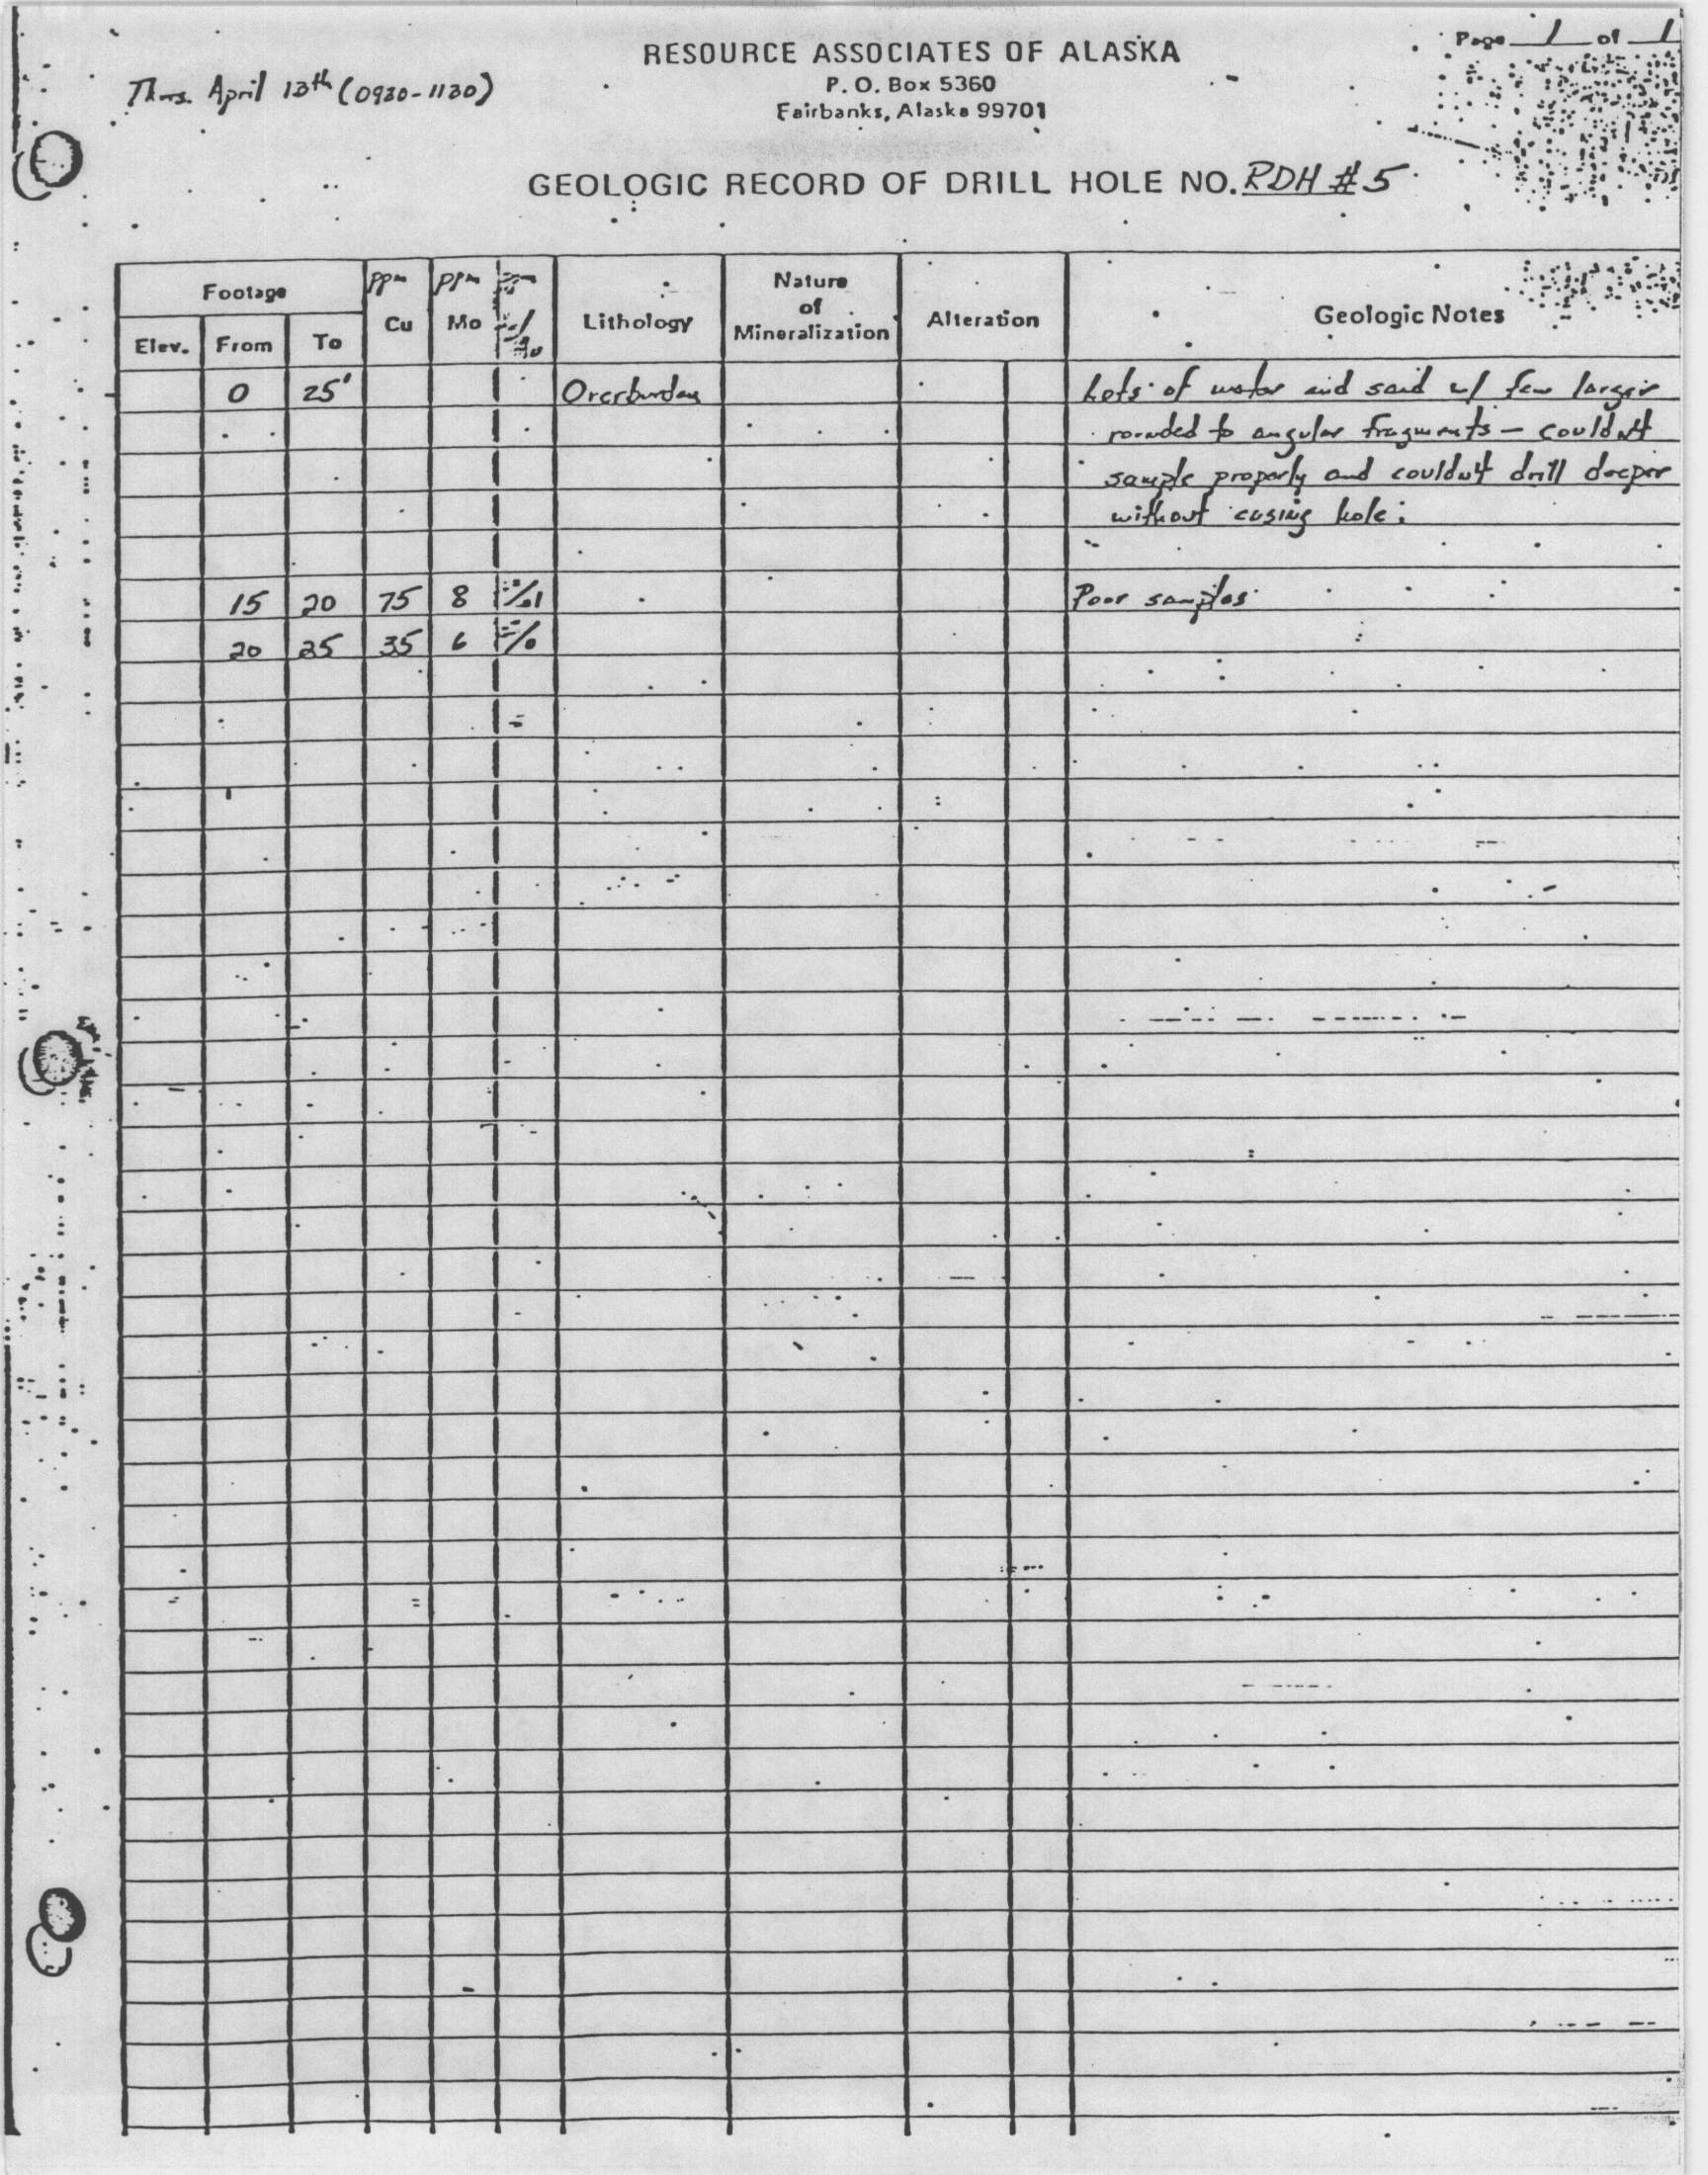 Page 1 of 1
RESOURCE ASSOCIATES OF ALASKA
Thurs. April 13th (0930-1130)
P. O. Box 5360
Fairbanks, Alaska 99701
GEOLOGIC RECORD OF DRILL HOLE NO. RDH #5
Footage ppm ppm Nature
of
Cu Mo Lithology Mineralization Alteration Geologic Notes
Elev. From To
0 25' Overburden Lots of water and sand w/ few larger
rounded to angular fragments - couldn't
sample properly and couldn't drill deeper
without casing hole.
15 20 75 8 Poor samples
20 25 35 6